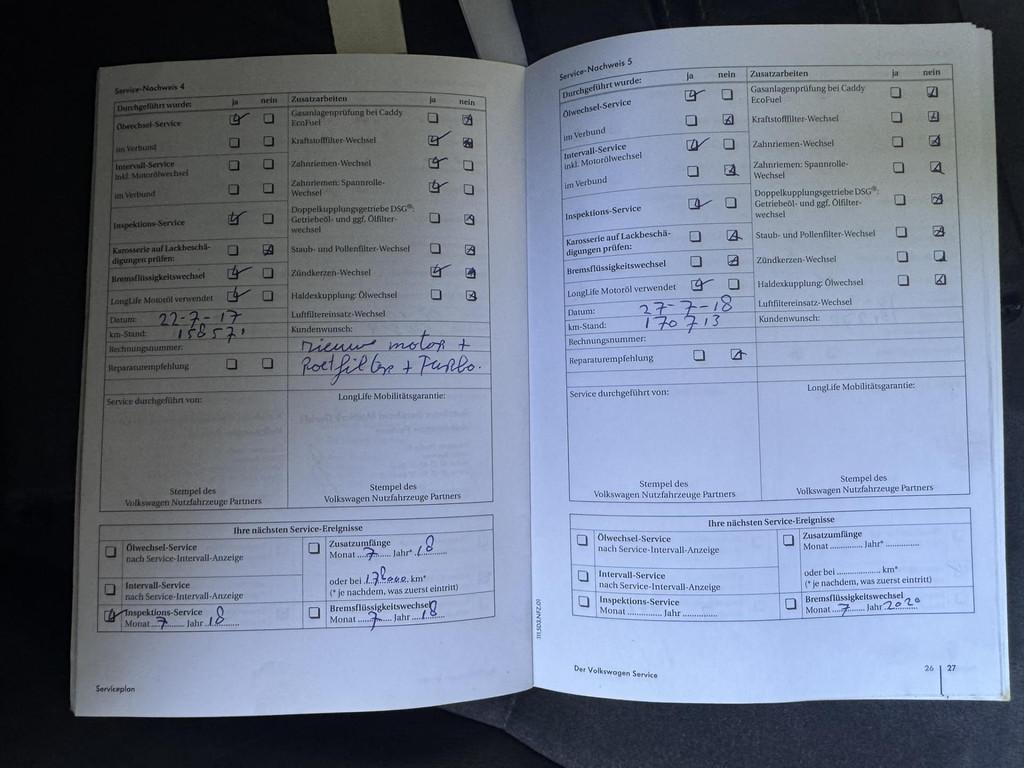 Service-Nachweis 4
Durchgeführt wurde: ja nein Zusatzarbeiten ja nein
Ölwechsel-Service Gasanlagenprüfung bei Caddy
EcoFuel
im Verbund Kraftstofffilter-Wechsel
Intervall-Service Zahnriemen-Wechsel
inkl. Motorölwechsel
im Verbund Zahnriemen: Spannrolle-
Wechsel
Inspektions-Service Doppelkupplungsgetriebe DSG®:
Getriebeöl- und ggf. Ölfilter-
wechsel
Karosserie auf Lackbeschä- Staub- und Pollenfilter-Wechsel
digungen prüfen:
Bremsflüssigkeitswechsel Zündkerzen-Wechsel
LongLife Motoröl verwendet Haldexkupplung: Ölwechsel
Datum: 22-7-17 Luftfiltereinsatz-Wechsel
km-Stand: 158571 Kundenwunsch:
Rechnungsnummer: nieuwe motor +
Reparaturempfehlung Roetfilter + Turbo.
Service durchgeführt von: LongLife Mobilitätsgarantie:
Stempel des Stempel des
Volkswagen Nutzfahrzeuge Partners Volkswagen Nutzfahrzeuge Partners
Ihre nächsten Service-Ereignisse
Ölwechsel-Service Zusatzumfänge
nach Service-Intervall-Anzeige Monat 7 Jahr* 18
oder bei km*
Intervall-Service (* je nachdem, was zuerst eintritt)
nach Service-Intervall-Anzeige
Inspektions-Service Bremsflüssigkeitswechsel
Monat 7 Jahr 18 Monat 7 Jahr 18
Serviceplan
Service-Nachweis 5
Durchgeführt wurde: ja nein Zusatzarbeiten ja nein
Ölwechsel-Service Gasanlagenprüfung bei Caddy
EcoFuel
im Verbund Kraftstofffilter-Wechsel
Intervall-Service Zahnriemen-Wechsel
inkl. Motorölwechsel
im Verbund Zahnriemen: Spannrolle-
Wechsel
Inspektions-Service Doppelkupplungsgetriebe DSG®:
Getriebeöl- und ggf. Ölfilter-
wechsel
Karosserie auf Lackbeschä- Staub- und Pollenfilter-Wechsel
digungen prüfen:
Bremsflüssigkeitswechsel Zündkerzen-Wechsel
LongLife Motoröl verwendet Haldexkupplung: Ölwechsel
Datum: 27-7-18 Luftfiltereinsatz-Wechsel
km-Stand: 170713 Kundenwunsch:
Rechnungsnummer:
Reparaturempfehlung
Service durchgeführt von: LongLife Mobilitätsgarantie:
Stempel des Stempel des
Volkswagen Nutzfahrzeuge Partners Volkswagen Nutzfahrzeuge Partners
Ihre nächsten Service-Ereignisse
Ölwechsel-Service Zusatzumfänge
nach Service-Intervall-Anzeige Monat .............. Jahr* ..............
oder bei .................. km*
Intervall-Service (* je nachdem, was zuerst eintritt)
nach Service-Intervall-Anzeige
Inspektions-Service Bremsflüssigkeitswechsel
Monat .............. Jahr .............. Monat 7 Jahr 2020
Der Volkswagen Service 26 27